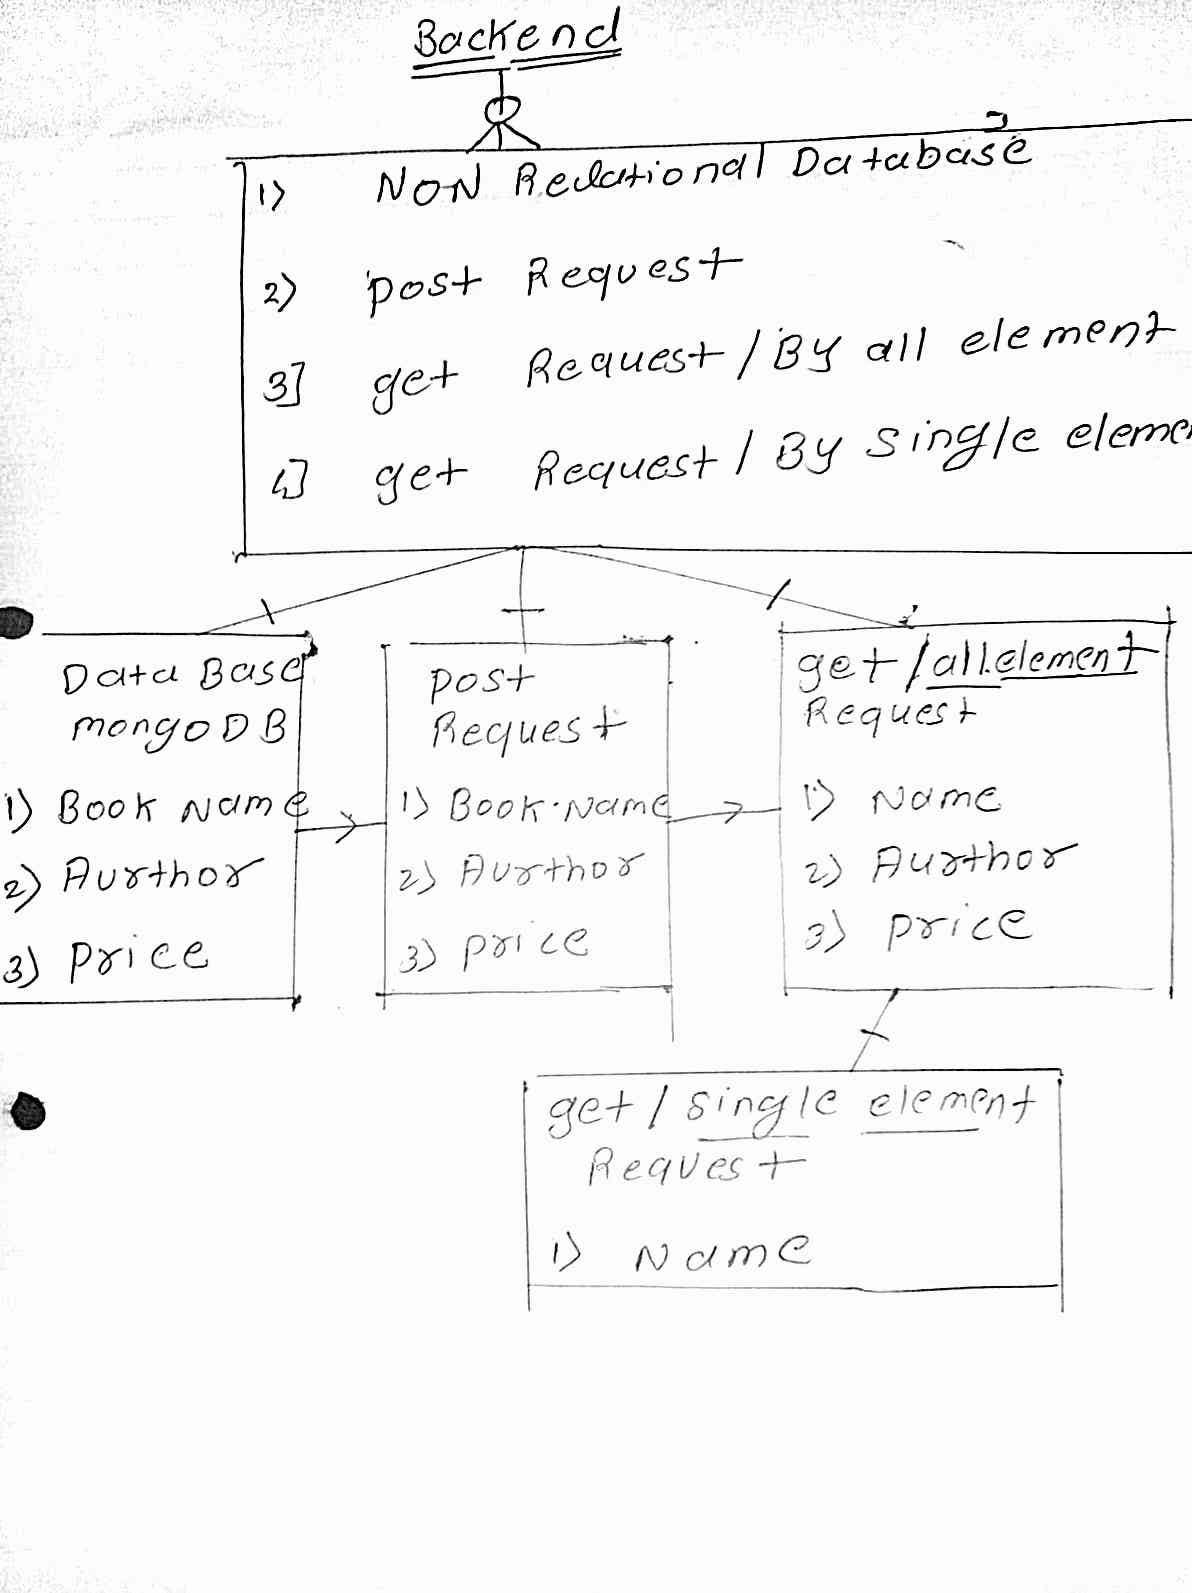 Backend
1) NON Relational Database
2) post Request
3] get Request / By all element
4] get Request / By Single eleme
Data Base
mongoDB
1) Book Name
2) Aurthor
3) Price
post
Request
1) Book Name
2) Aurthor
3) price
get / all element
Request
1) Name
2) Aurthor
3) price
get / single element
Request
1) Name